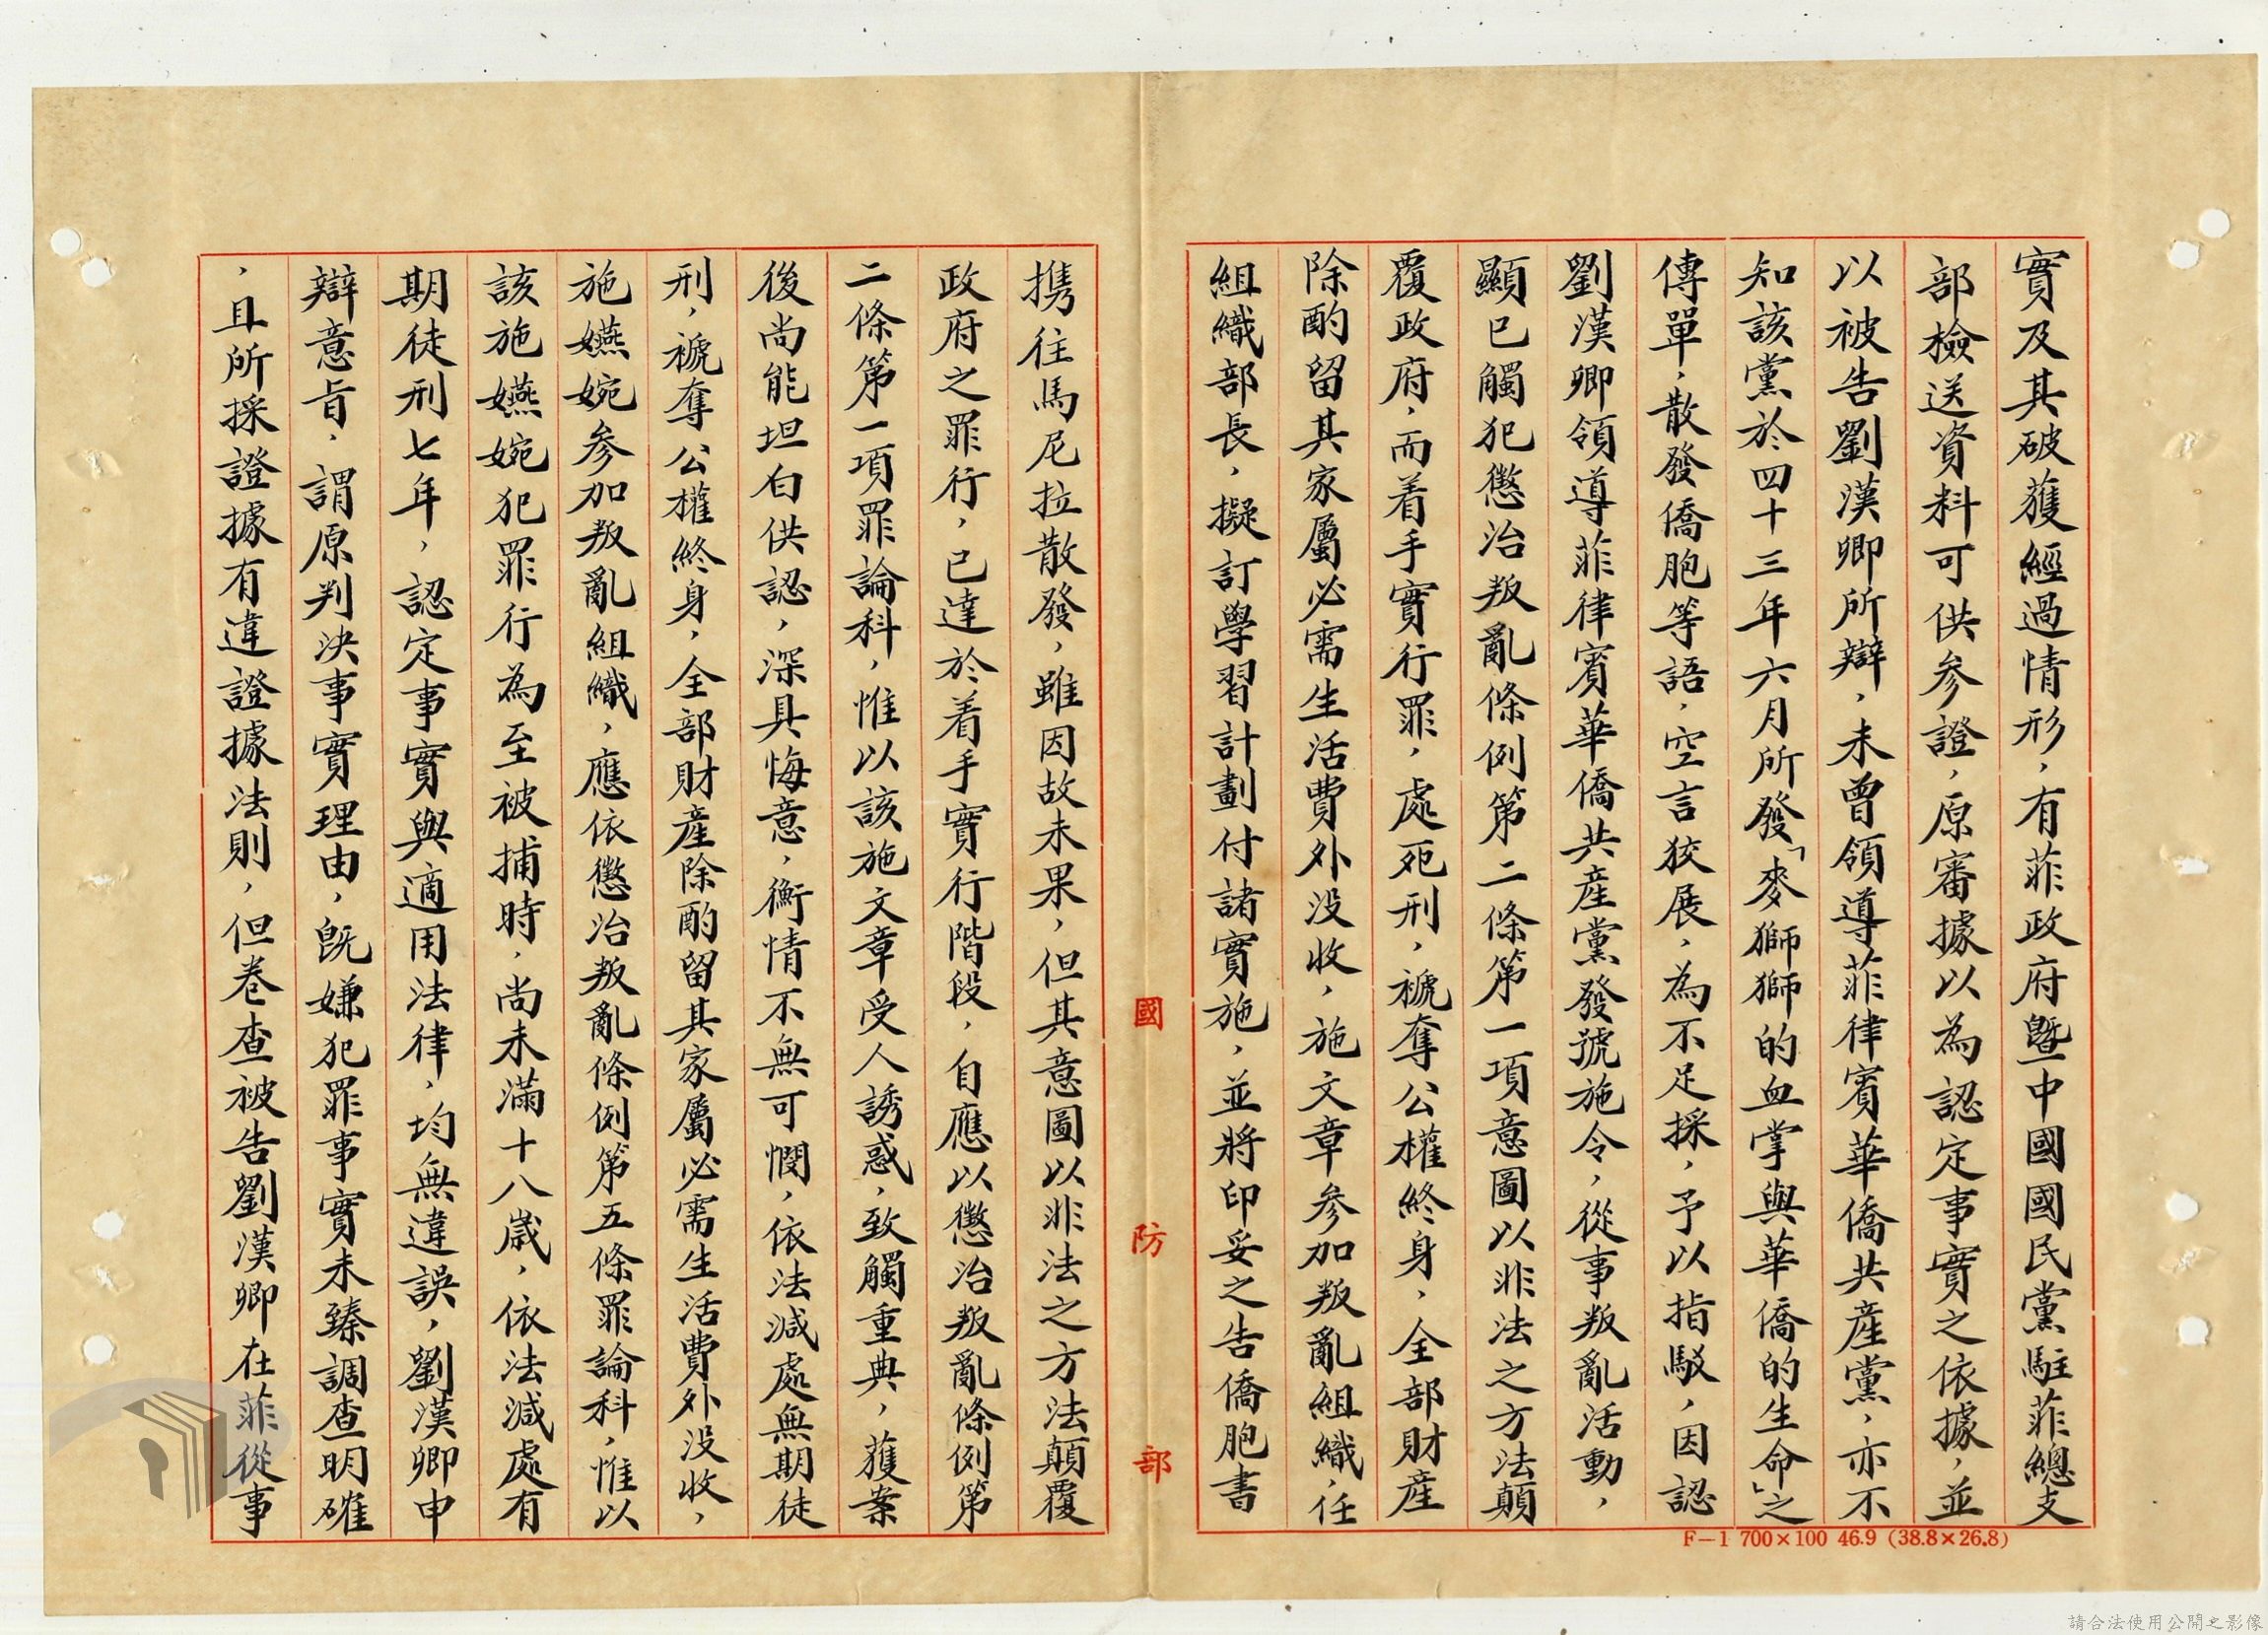 實及其破獲經過情形，有菲政府暨中國國民黨駐菲總支
部檢送資料可供參證，原審據以為認定事實之依據，並
以被告劉漢卿所辯，未曾領導菲律賓華僑共產黨，亦不
知該黨於四十三年六月所發「麥獅獅的血掌與華僑的生命」之
傳單，散發僑胞等語，空言狡展，為不足採，予以指駁，因認
劉漢卿領導菲律賓華僑共產黨發號施令，從事叛亂活動，
顯已觸犯懲治叛亂條例第二條第一項意圖以非法之方法顛
覆政府，而着手實行罪，處死刑，褫奪公權終身，全部財產
除酌留其家屬必需生活費外没收，施文章參加叛亂組織，任
組織部長，擬訂學習計劃付諸實施，並將印妥之告僑胞書
携往馬尼拉散發，雖因故未果，但其意圖以非法之方法顛覆
政府之罪行，已達於着手實行階段，自應以懲治叛亂條例第
二條第一項罪論科，惟以該施文章受人誘惑，致觸重典，獲案
後尚能坦白供認，深具悔意，衡情不無可憫，依法減處無期徒
刑，褫奪公權終身，全部財產除酌留其家屬必需生活費外没收，
施嬿婉參加叛亂組織，應依懲治叛亂條例第五條罪論科，惟以
該施嬿婉犯罪行為至被捕時，尚未滿十八歲，依法減處有
期徒刑七年，認定事實與適用法律，均無違誤，劉漢卿申
辯意旨，謂原判決事實理由，既嫌犯罪事實未臻調查明確
，且所採證據有違證據法則，但卷查被告劉漢卿在菲從事
國防部
F—1 700×100 46.9 (38.8×26.8)
請合法使用公開之影像